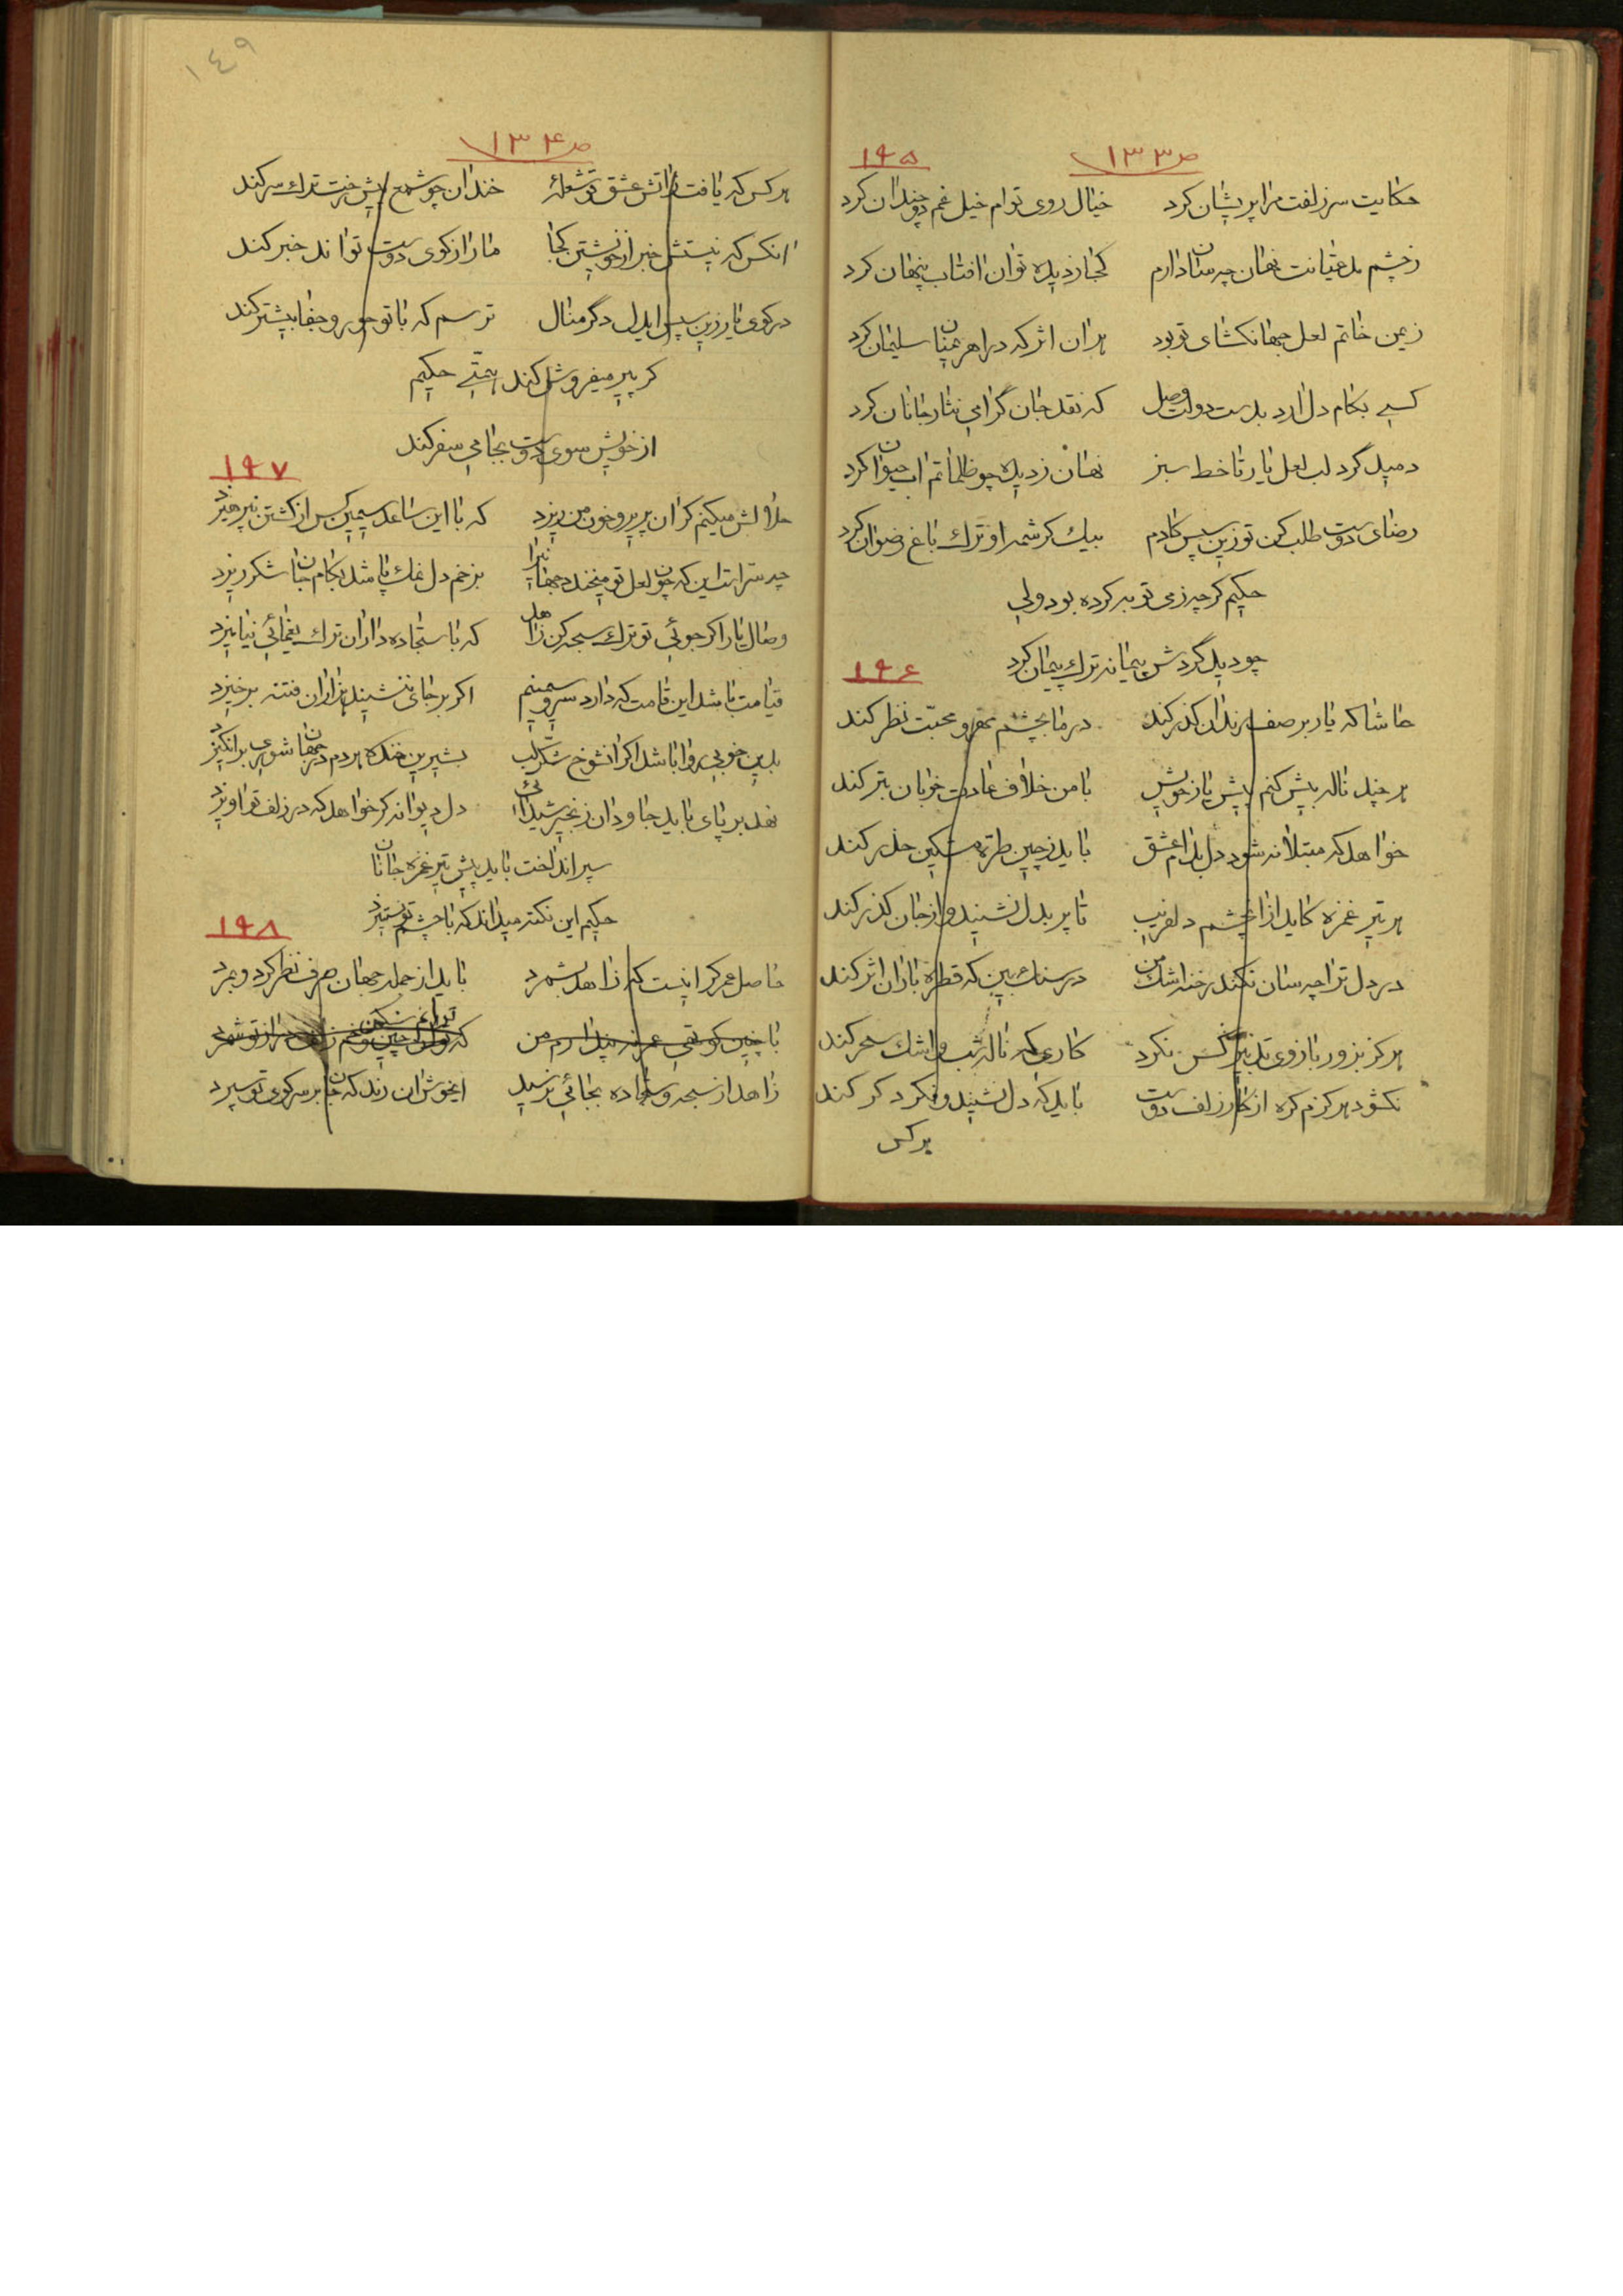 ص ۱۳۳
۱۹۵
حکایت سر زلفت مرا پریشان کرد خیال روی توام خیل غم دوچندان کرد
ز چشم مدعیانت نهان چه سان دارم کجا ز دیده توان افتاب پنهان کرد
ز یمن خاتم لعل جهانگشای تو بود هر ان اثر که در اهریمنان سلیمان کرد
کسی بکام دل ارد بدست دولت وصل که نقد جان گرامی نثار جانان کرد
دمید گرد لب لعل یار تا خط سبز نهان ز دیده چو ظلماتم اب حیوان کرد
رضای دوست طلب کن تو زین سپس کادم بیک کرشمه او ترک باغ رضوان کرد
حکیم گرچه ز می توبه کرده بود ولی
چو دید گردش پیمانه ترک پیمان کرد
۱۹۶
حاشا که یار بر صف رندان گذر کند در ما بچشم مهر و محبت نظر کند
هر چند ناله بیش کنم پیش یار خویش با من خلاف عادت خوبان بتر کند
خواهد که مبتلا نه شود دل بدام عشق باید ز چین طره مشکین حذر کند
هر تیر غمزه کاید از ان چشم دلفریب تا پر بدل نشیند و از جان گذر کند
در دل ترا چه سان نکند رخنه اشک من در سنگ بین که قطره باران اثر کند
هرگز بزور بازوی تدبیر کس نکرد کاری که ناله شب و اشک سحر کند
نکشود هرگزم گره از کار زلف دوست باید که دل نشیند و فکر دگر کند
هر کس
۱۴۹
ص ۱۳۴
هر کس که یافت ز اتش عشق تو شعلهٔ خندان چو شمع پیش رخت ترک سر کند
انکس که نیستش خبر از خویشتن کجا ما را ز کوی دوست تواند خبر کند
در کوی یار زین سپس ایدل دگر منال ترسم که با تو جور و جفا بیشتر کند
گر پیر میفروش کند همتی حکیم
از خویش سوی دوست بجامی سفر کند
۱۹۷
حلالش میکنم گر ان پریرو خون من ریزد که با این ساعد سیمین کس از کشتن نپرهیزد
چه سر است این که چون لعل تو میخندد جهانیرا بزخم دل نمک پاشد بکام جان شکر ریزد
وصال یار اگر جوئی تو ترک سبحه کن زاهد که با سجاده داران ترک یغمائی نیامیزد
قیامت باشد این قامت که دارد سرو سیمینم اگر بر جای ننشیند هزاران فتنه برخیزد
بدین خوبی روا باشد اگر انشوخ شکرلب بشیرین خنده هردم در جهان شوری برانگیزد
نهد بر پای باید جاودان زنجیر شیدائی دل دیوانه گر خواهد که در زلف تو اویزد
سپر انداخت باید پیش تیر غمزه جانان
حکیم این نکته میداند که با چشم تو نستیزد
۱۹۸
حاصل عمر گر اینست که زاهد بشمرد باید از جمله جهان صرف نظر کرد و بمرد
با چنین من که
زاهد از سبحه و سجاده بجائی نرسید ایخوش ان رند که جان بر سر کوی تو سپرد